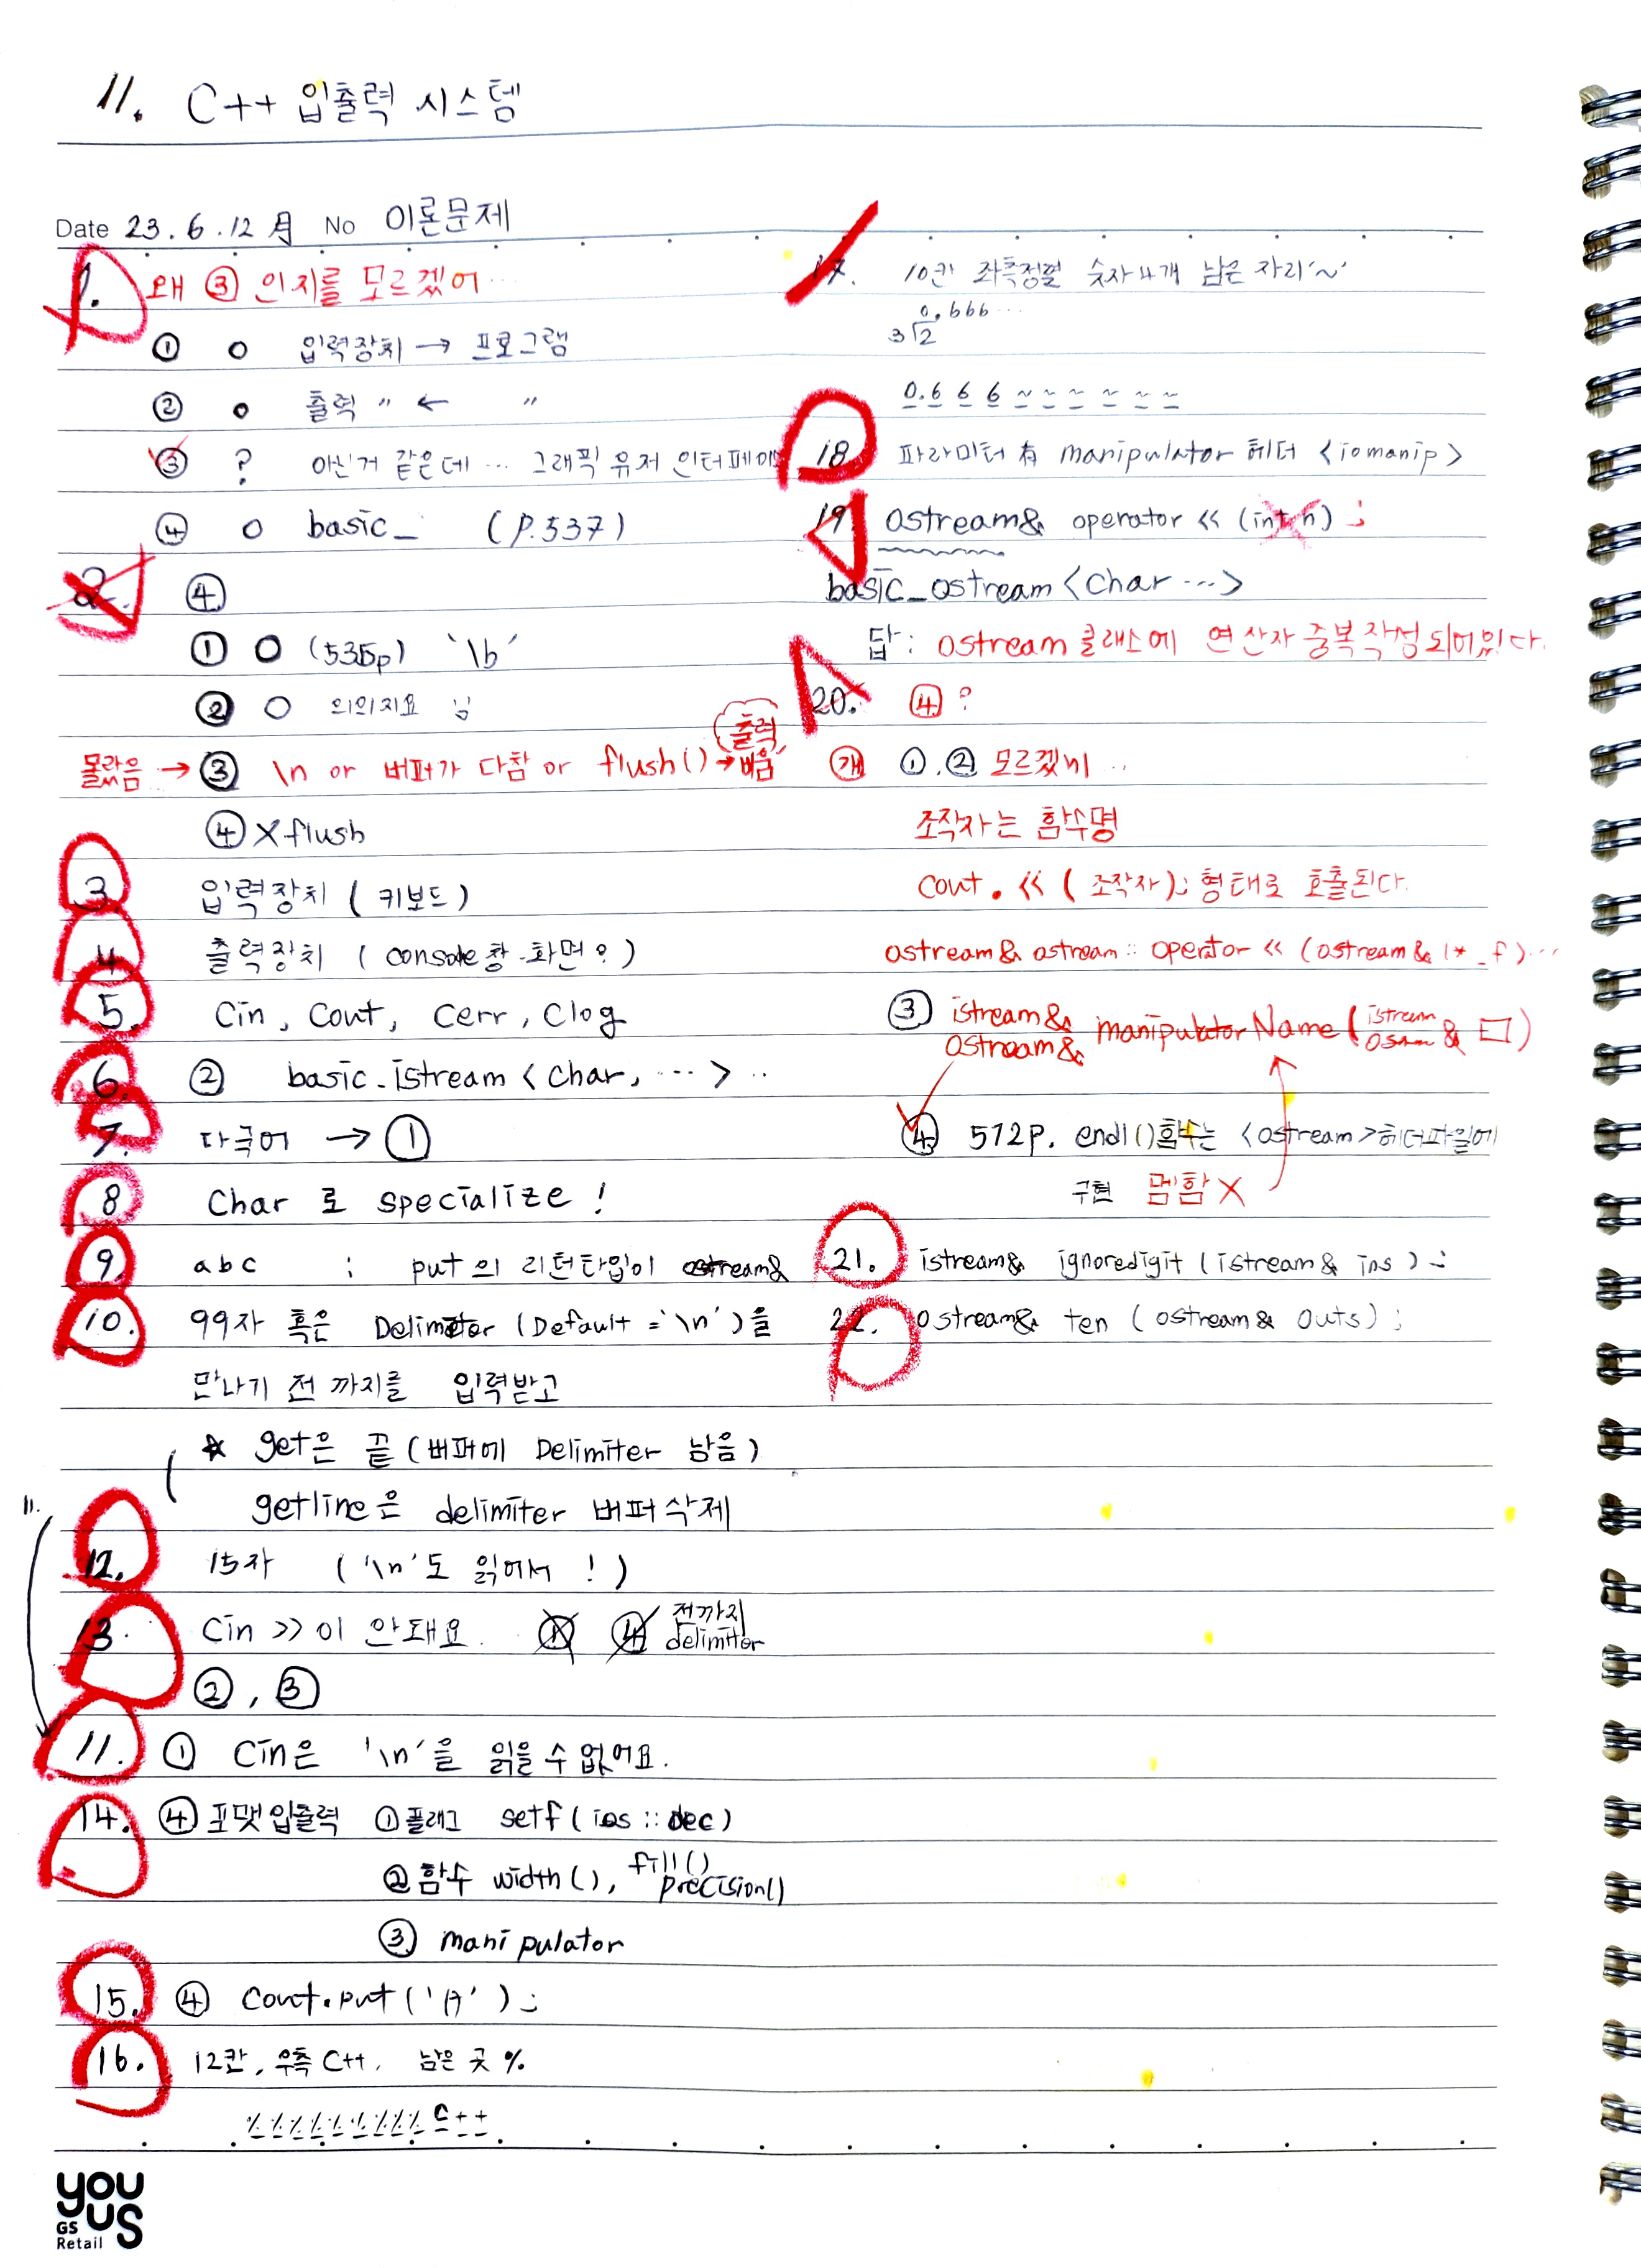 11. C++ 입출력 시스템
Date 23.6.12月 No 이론문제
1. 왜 ③ 인지를 모르겠어…
① ○ 입력장치 → 프로그램
② ○ 출력 〃 ← 〃
③ ? 아닌거 같은데… 그래픽 유저 인터페이스
④ ○ basic_ (P.537)
2. ④
① ○ (535p) '\b'
② ○
몰랐음 → ③ \n or 버퍼가 다참 or flush() → 출력 비움
④ X flush
3. 입력장치 (키보드)
4. 출력장치 (console창-화면?)
5. Cin, Cout, Cerr, Clog
6. ② basic_istream <char, …> ..
7. 다국어 → ①
8 Char 로 specialize!
9. abc : put의 리턴타입이 ostream&
10. 99자 혹은 Delimiter (Default = '\n')을
만나기 전 까지를 입력받고
☆ get은 끝 (버퍼에 Delimiter 남음)
getline은 delimiter 버퍼삭제
11.
12. 15자 ('\n'도 읽어서!)
13. Cin >> 이 안돼요. ① ④ 전까지 delimiter
②, ③
11. ① Cin은 '\n'을 읽을 수 없어요.
14. ④ 포맷입출력 ① 플래그 setf(ios::dec)
② 함수 width(), fill() precision()
③ manipulator
15. ④ Cout.put('A');
16. 12칸, 우측 C++, 남은 곳 %
%%%%%%%%%C++
17. 10칸 좌측정렬 숫자4개 남은 자리'~'
0.666…
3 2
0.666~~~~~
18 파라미터 有 manipulator 헤더 <iomanip>
19 ostream& operator << (int n);
basic_ostream <char …>
답: ostream 클래스에 연산자 중복 작성되어있다.
20. ④ ?
①.② 모르겠네…
조작자는 함수명
Cout. << (조작자); 형태로 호출된다.
ostream& ostream:: operator << (ostream& (* _f)…
③ istream& ostream& manipulatorName (istream ostream &)
④ 572p. endl()함수는 <ostream>헤더파일에
구현 멤함 X
21. istream& ignoredigit (istream& ins);
22. ostream& ten (ostream& outs);
you us
GS Retail